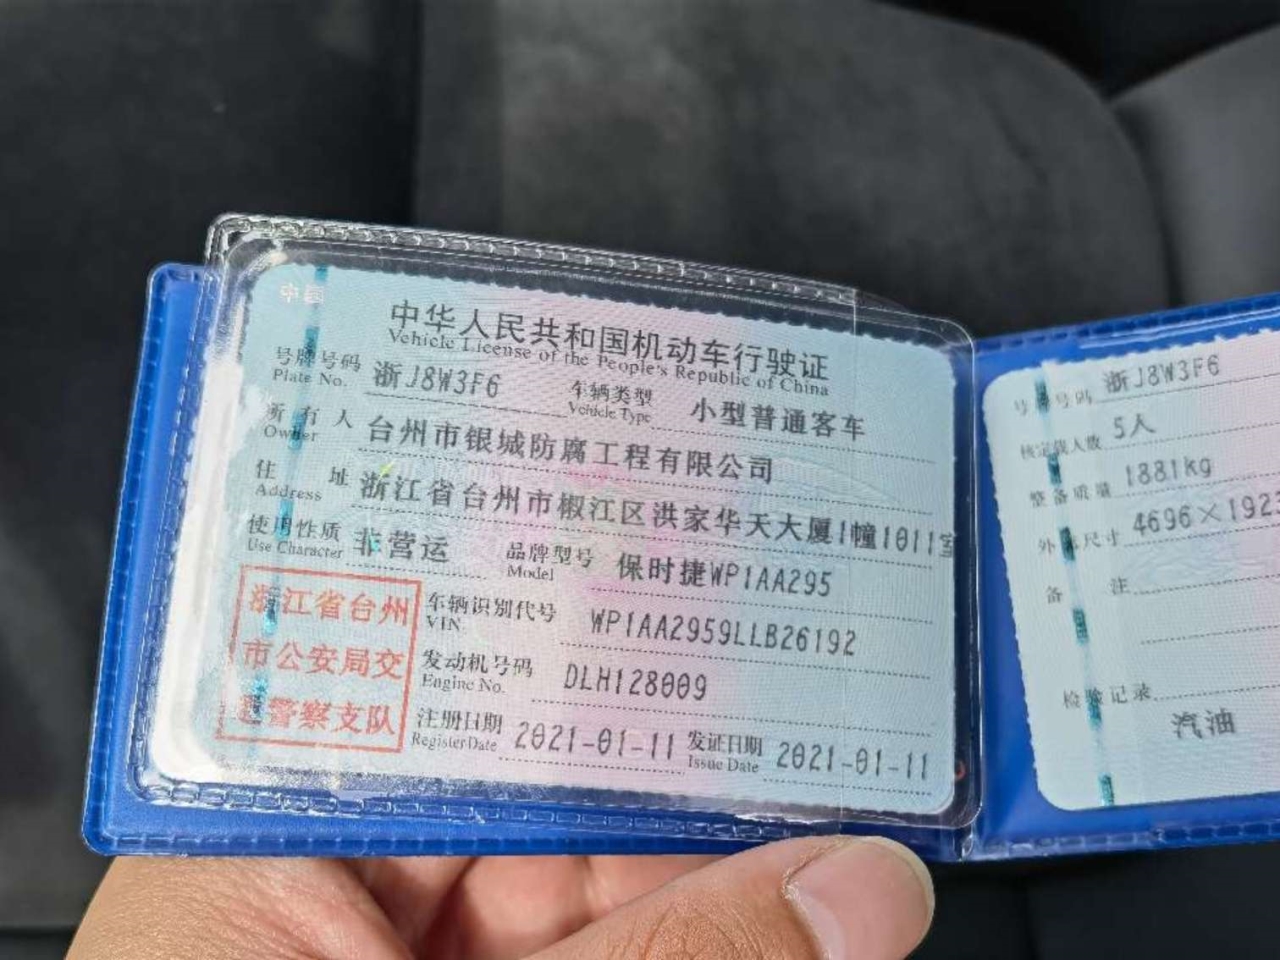 中国
中华人民共和国机动车行驶证
Vehicle License of the People's Republic of China
号牌号码 浙J8W3F6 车辆类型 小型普通客车
Plate No. Vehicle Type
所有人 台州市银城防腐工程有限公司
Owner
住址 浙江省台州市椒江区洪家华天大厦1幢1011室
Address
使用性质 非营运 品牌型号 保时捷WP1AA295
Use Character Model
浙江省台州
市公安局交
警察支队
车辆识别代号 WP1AA2959LLB26192
VIN
发动机号码 DLH128009
Engine No.
注册日期 2021-01-11 发证日期 2021-01-11
Register Date Issue Date
号牌号码 浙J8W3F6
核定载人数 5人
整备质量 1881kg
外廓尺寸 4696×192
备注
检验记录
汽油